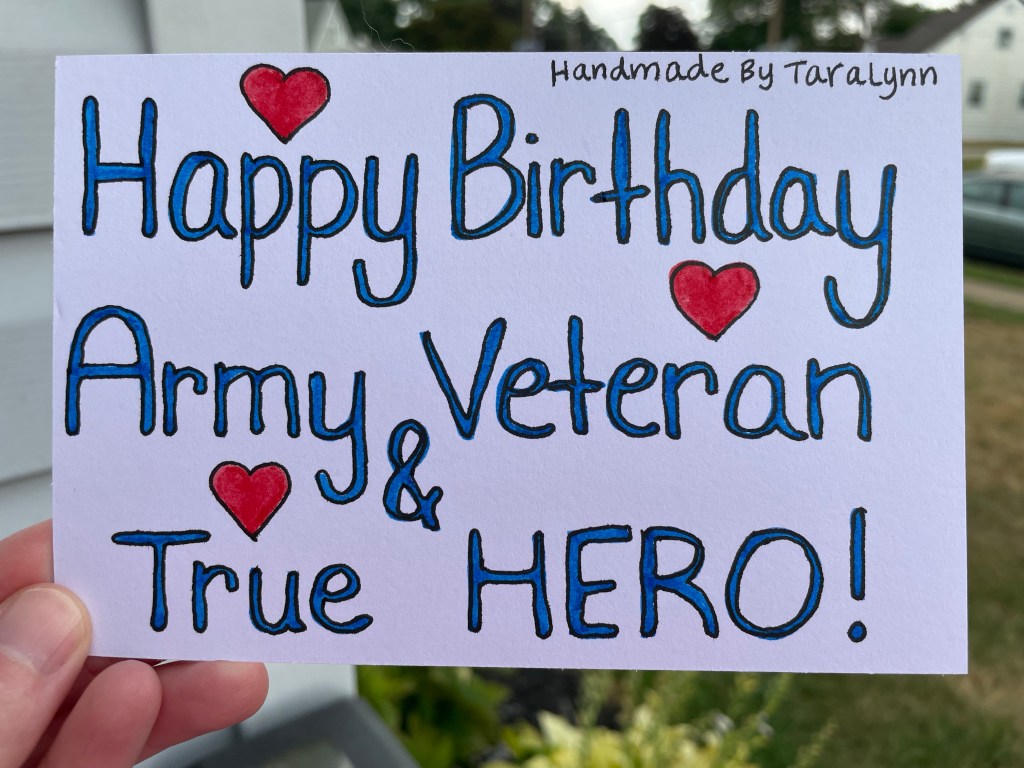 Handmade By TaraLynn
Happy Birthday
Army Veteran
&
True HERO!